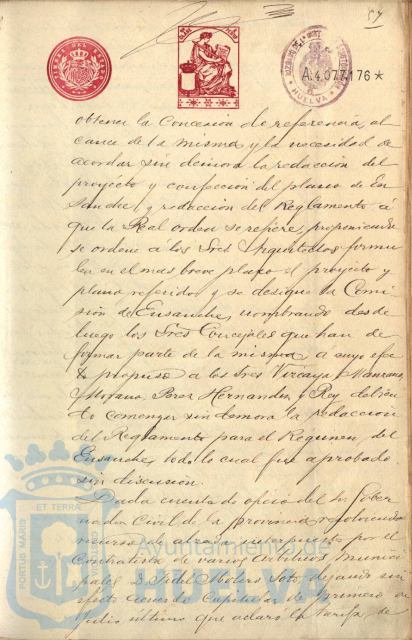 57
A.4.077.176★
HUELVA
obtener la Concesion de referencia, al
cauce de la misma y la necesidad de
acordar sin demora la redacción del
proyecto y confección del plano de En
sanche y redacción del Reglamento á
que la Real orden se refiere, proponiendo
se ordene á los Sres Arquitectos formu
len en el mas breve plazo el proyecto y
plano referidos y se designe la Comi
sión de Ensanche, nombrando desde
luego los Sres Concejales que han de
formar parte de la misma, a cuyo efec
to propuso a los Sres Vizcaya, Manzano,
Perez Hernandez y Rey debien
do comenzar sin demora la redacción
del Reglamento para el Regimen del
Ensanche, todo lo cual fue aprobado
sin discusion.
Dada cuenta de oficio del Sr. Gober
nador Civil de la provincia resolviendo
recurso de alzada interpuesto por el
Contratista de varios Arbitrios munici
pales D. Fidel Molero Soto, dejando sin
efecto acuerdo Capitular de primero de
Julio último que aclaró la tarifa de
PORTUS MARIS ET TERRÆ
Ayuntamiento de
HUELVA